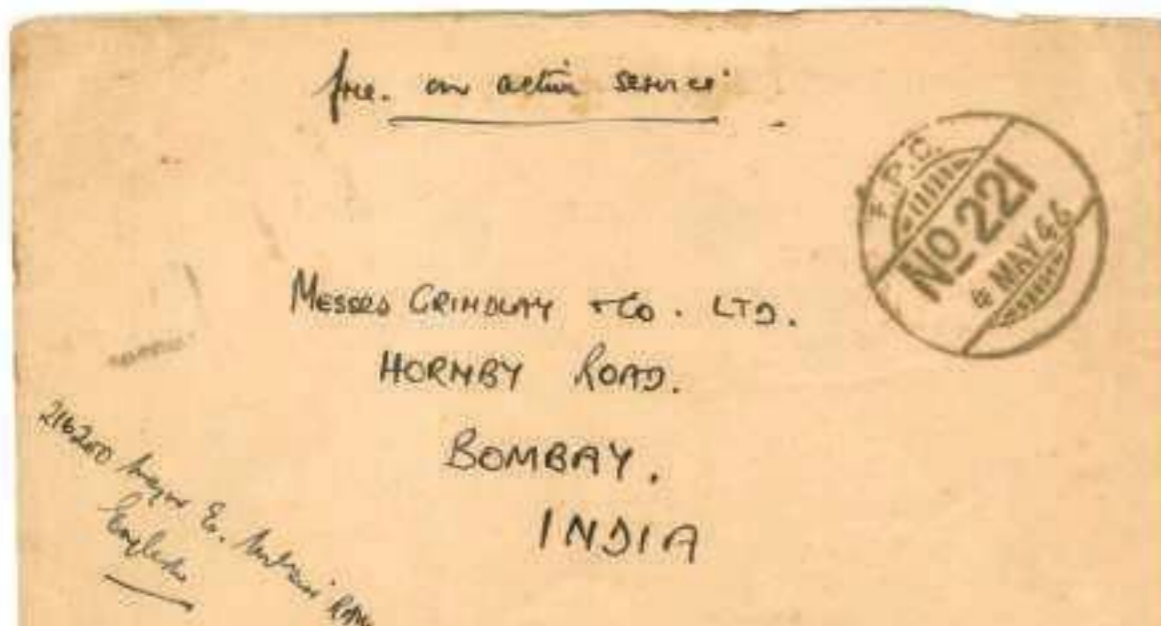 free. on active service
F.P.O.
No 221
4 MAY 46
MESSRS GRINDLAY + CO. LTD.
HORNBY ROAD.
BOMBAY.
INDIA
Major E.